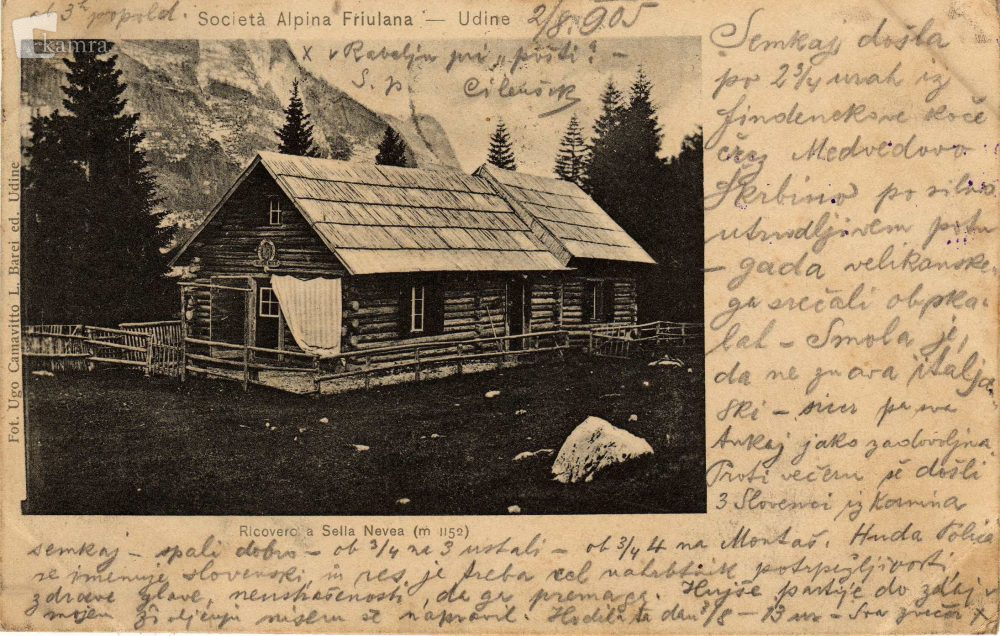 kamra
ob 3h popold.
Società Alpina Friulana — Udine
2/8. 905
x v Rabelju pri „pošti“? –
S. p.
Fot. Ugo Camavitto L. Barei ed. Udine
Semkaj došla
po 2 3/4 urah iz
Findenekove koče
čez Medvedovo
Škerbino po silno
utrudljivem potu
gada velikanske-
ga srečali
– Smola je,
da ne zna italja
ski – sicer pa sva
tukaj jako zadovoljna.
Proti večeru so došli
3 Slovenci iz Kormina
Ricovero a Sella Nevea (m 1152)
semkaj – spali dobro – ob 3/4 na 3 ustali – ob 3/4 4 na Montaž. Huda Polica
se imenuje slovenski in res je treba cel nahrbtnik potrpežljivosti
zdrave glave, neustrašenosti, da ga premaga. Hujše partije do zdaj v
mojem življenju nisem še napravil. Hodila ta dan 3/8 – 13 ur – Sva zvečer x